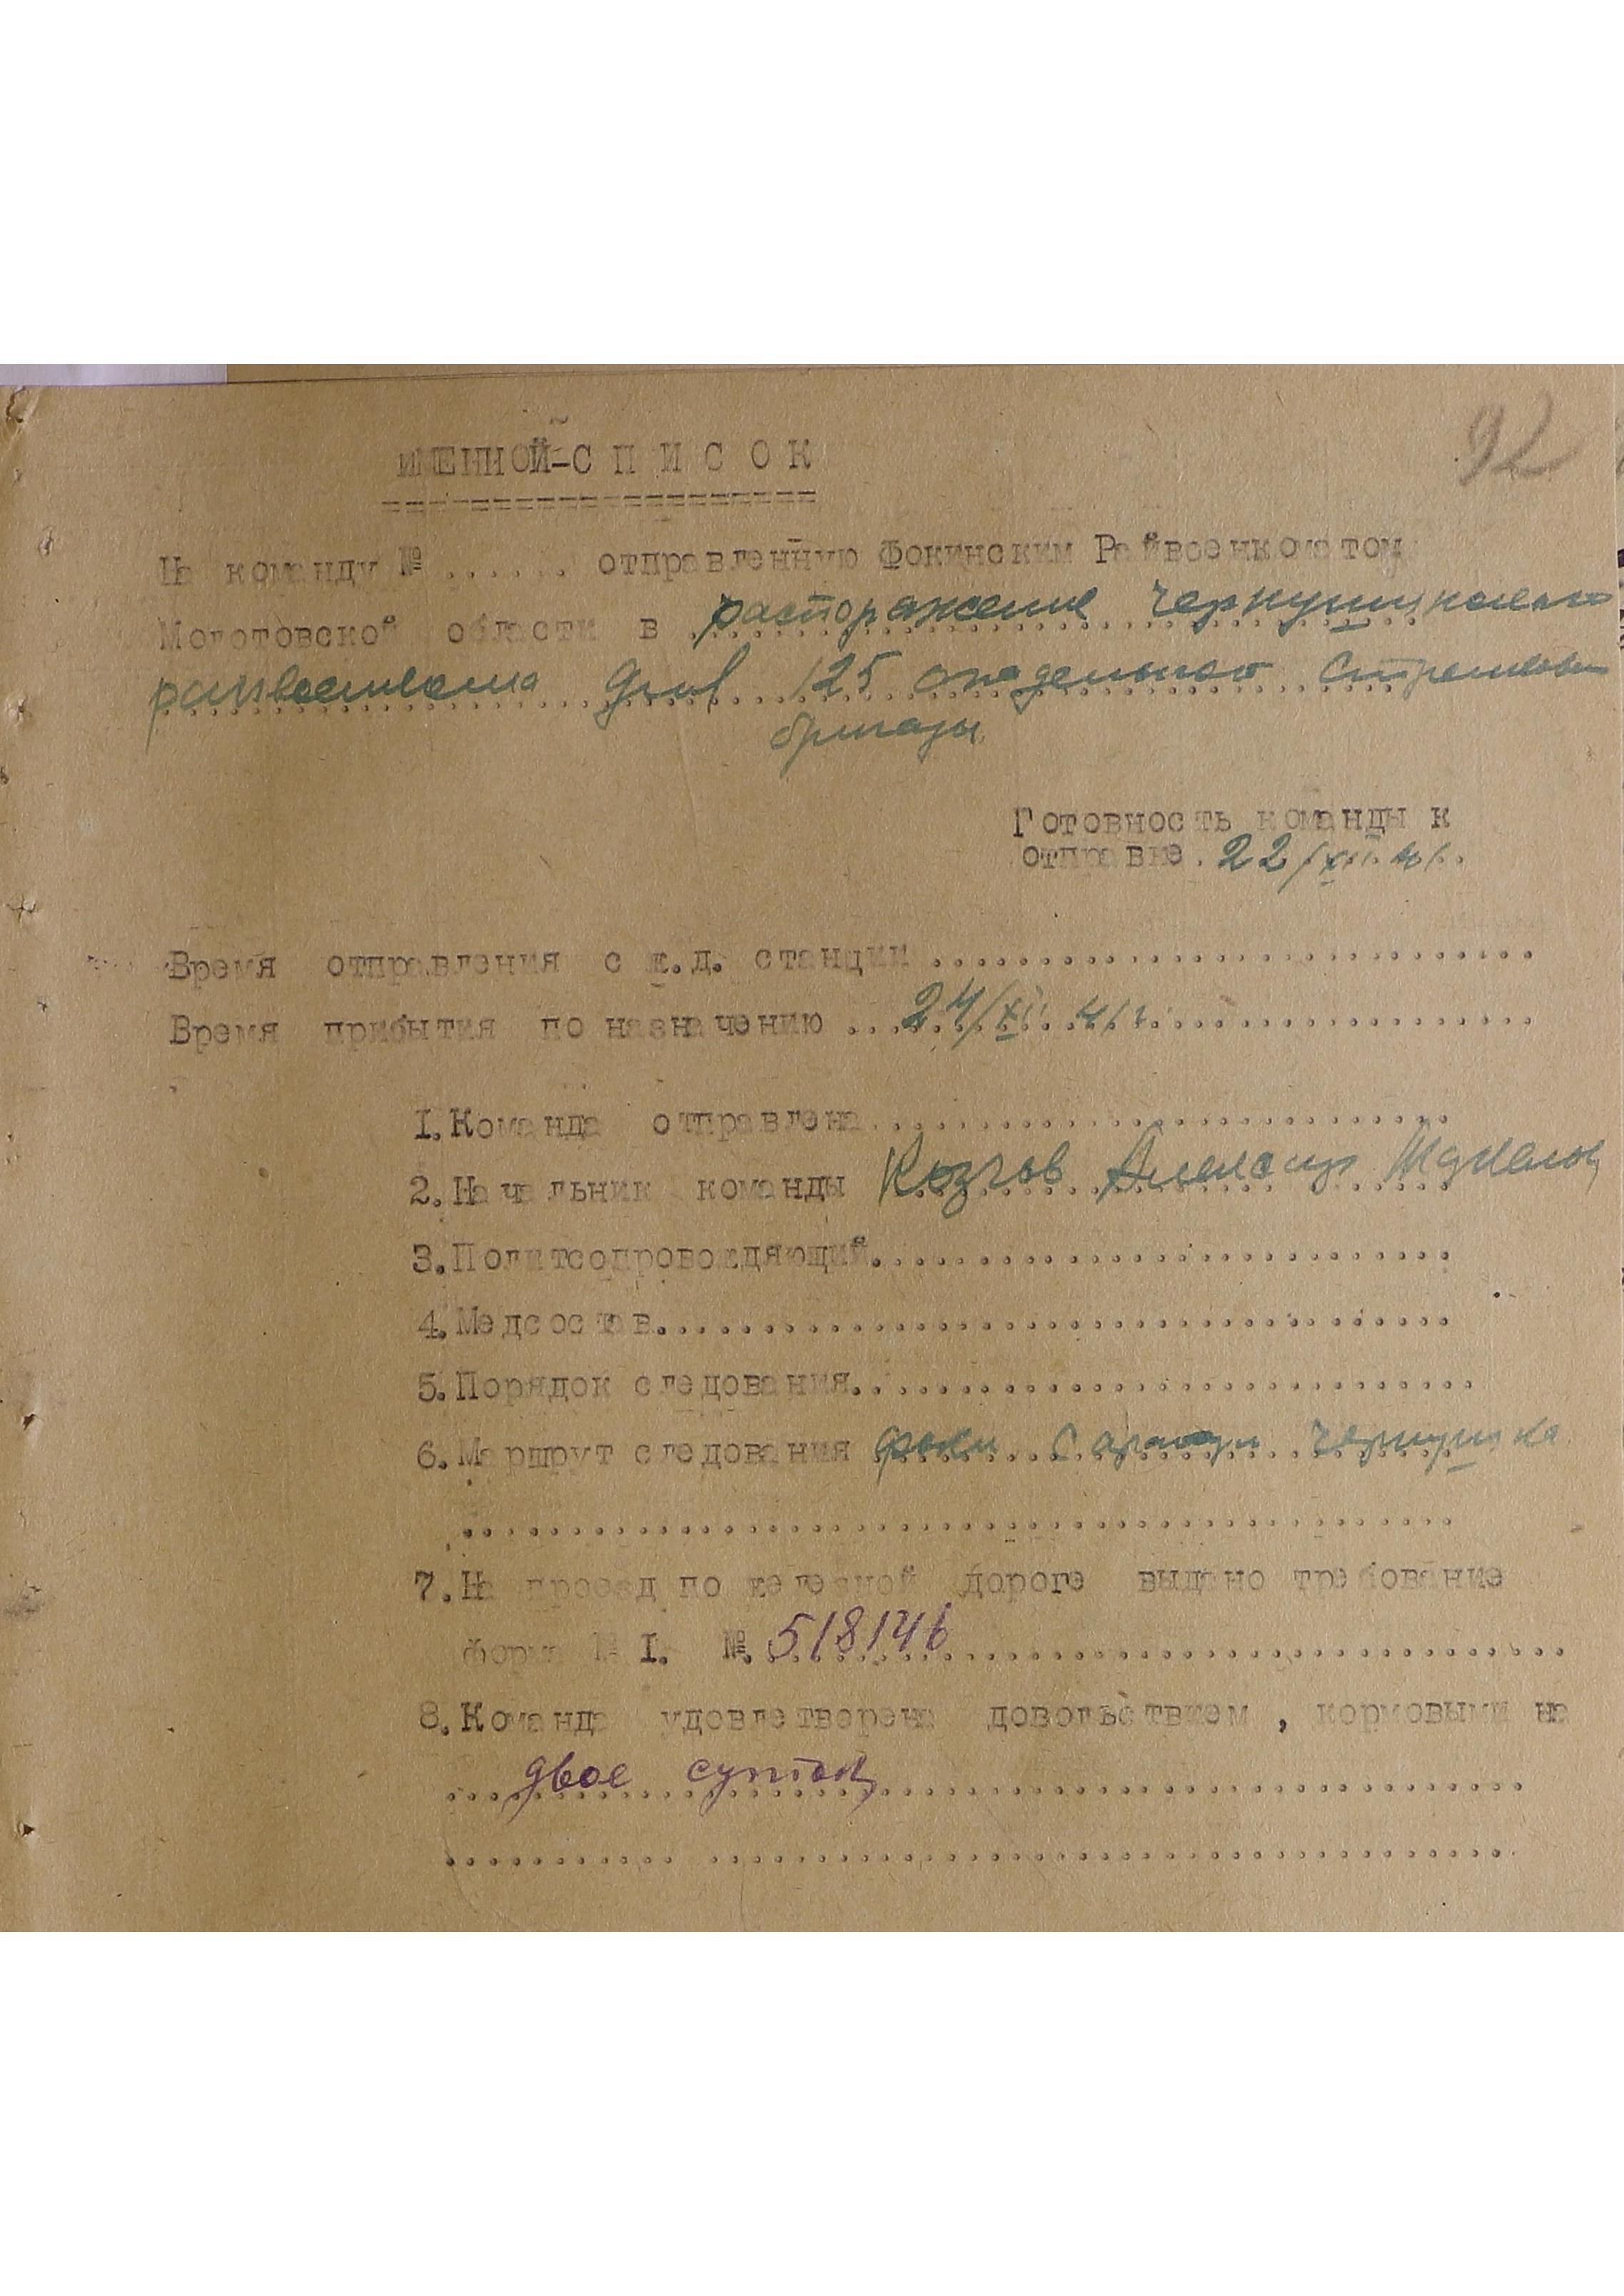 92
ИМЕННОЙ-С П И С О К
На команду № ...... отправленную Фокинским Райвоенкоматом
Молотовской области в распоряжение Чернушинского
райвоенкомата для 125 отдельной стрелковой
бригады
Готовность команды к
отправке. 22/XII.41.
Время отправления с ж.д. станции ..............................
Время прибытия по назначению ... 24/XII. 41г. ...................
1. Команда отправлена..............................
2. Начальник команды Козгов Александр
3. Политсопровождающий..............................
4. Медсостав........................................
5. Порядок следования..............................
6. Маршрут следования Фоки Сарапул Чернушка
..................................................
7. На проезд по железной дороге выдано требование
форма № I. №. 518146..............................
8. Команда удовлетворена довольствием, кормовыми на
... двое суток ..............................
........... ........................................